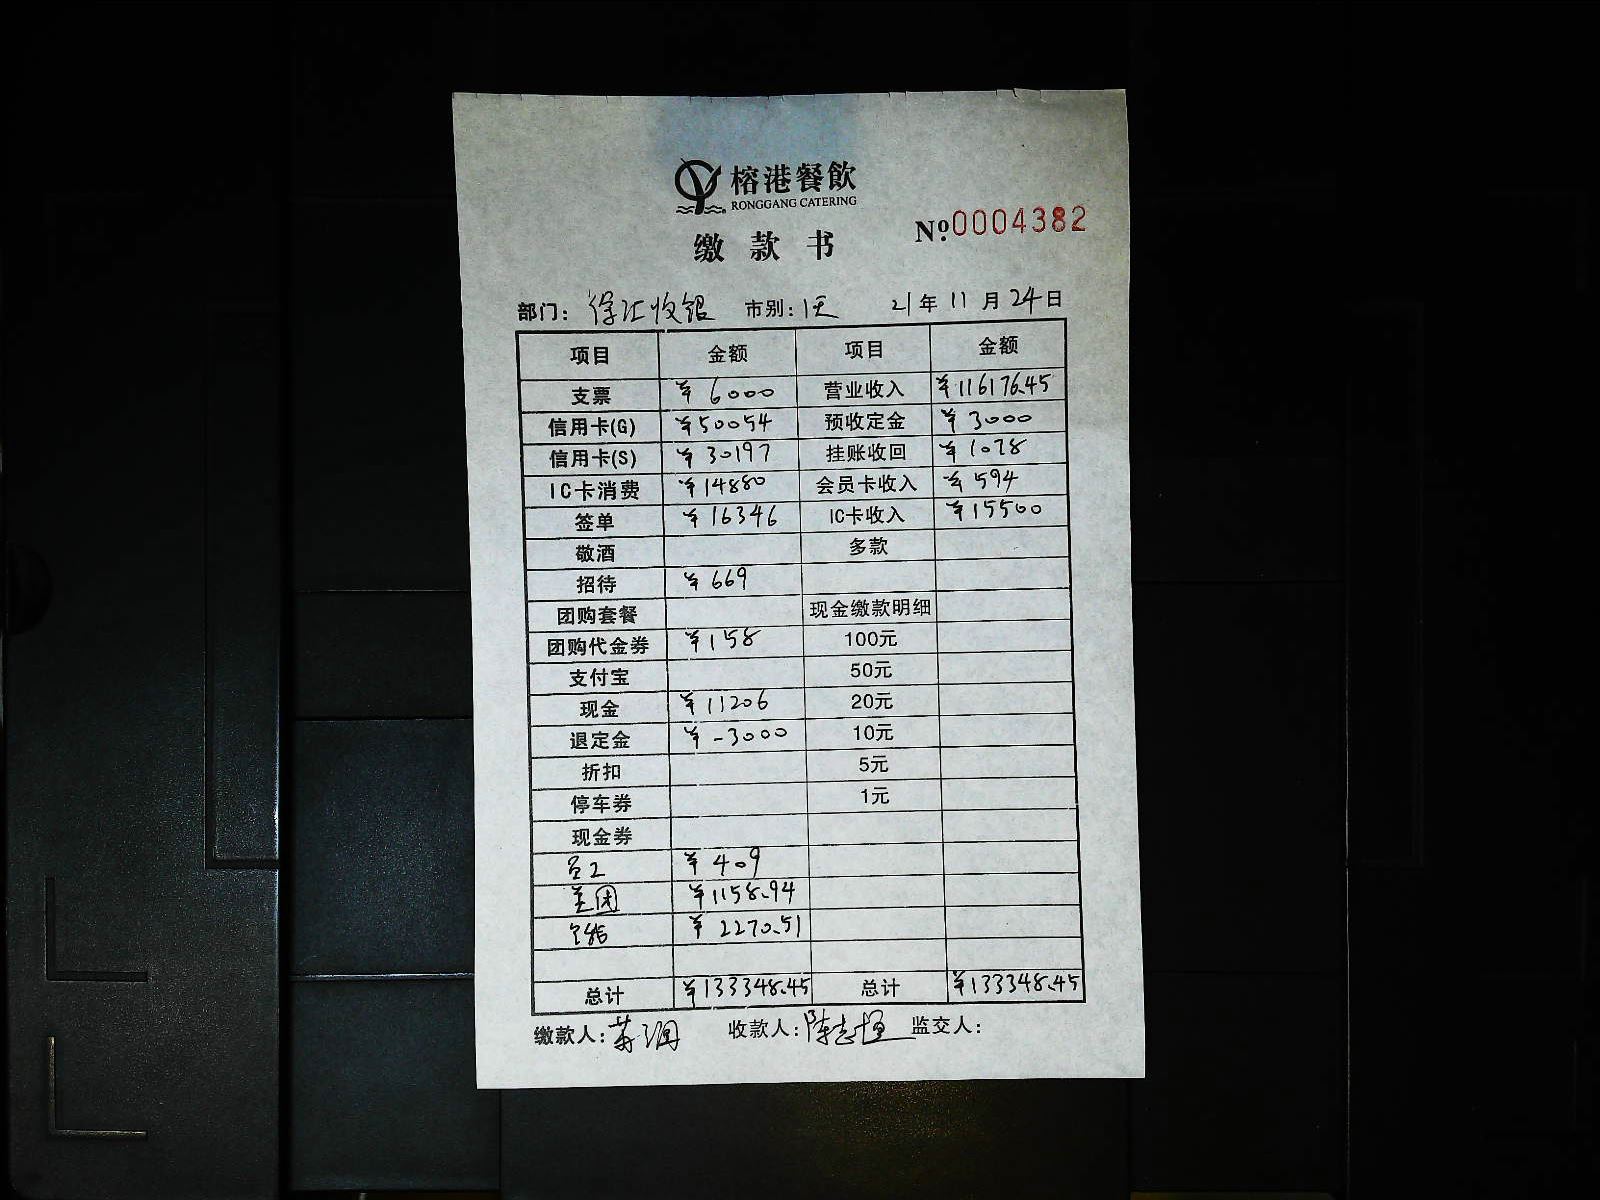 榕港餐飲
RONGGANG CATERING
缴款书 №0004382
部门：徐汇收银 市别：1天 21年11月24日
项目 金额 项目 金额
支票 ¥6000 营业收入 ¥116176.45
信用卡(G) ¥50054 预收定金 ¥3000
信用卡(S) ¥30197 挂账收回 ¥1078
IC卡消费 ¥14880 会员卡收入 ¥594
签单 ¥16346 IC卡收入 ¥15500
敬酒 多款
招待 ¥669
团购套餐 现金缴款明细
团购代金券 ¥158 100元
支付宝 50元
现金 ¥11206 20元
退定金 ¥-3000 10元
折扣 5元
停车券 1元
现金券
¥409
美团 ¥1158.94
¥2270.51
总计 ¥133348.45 总计 ¥133348.45
缴款人： 收款人：陈志恒 监交人：